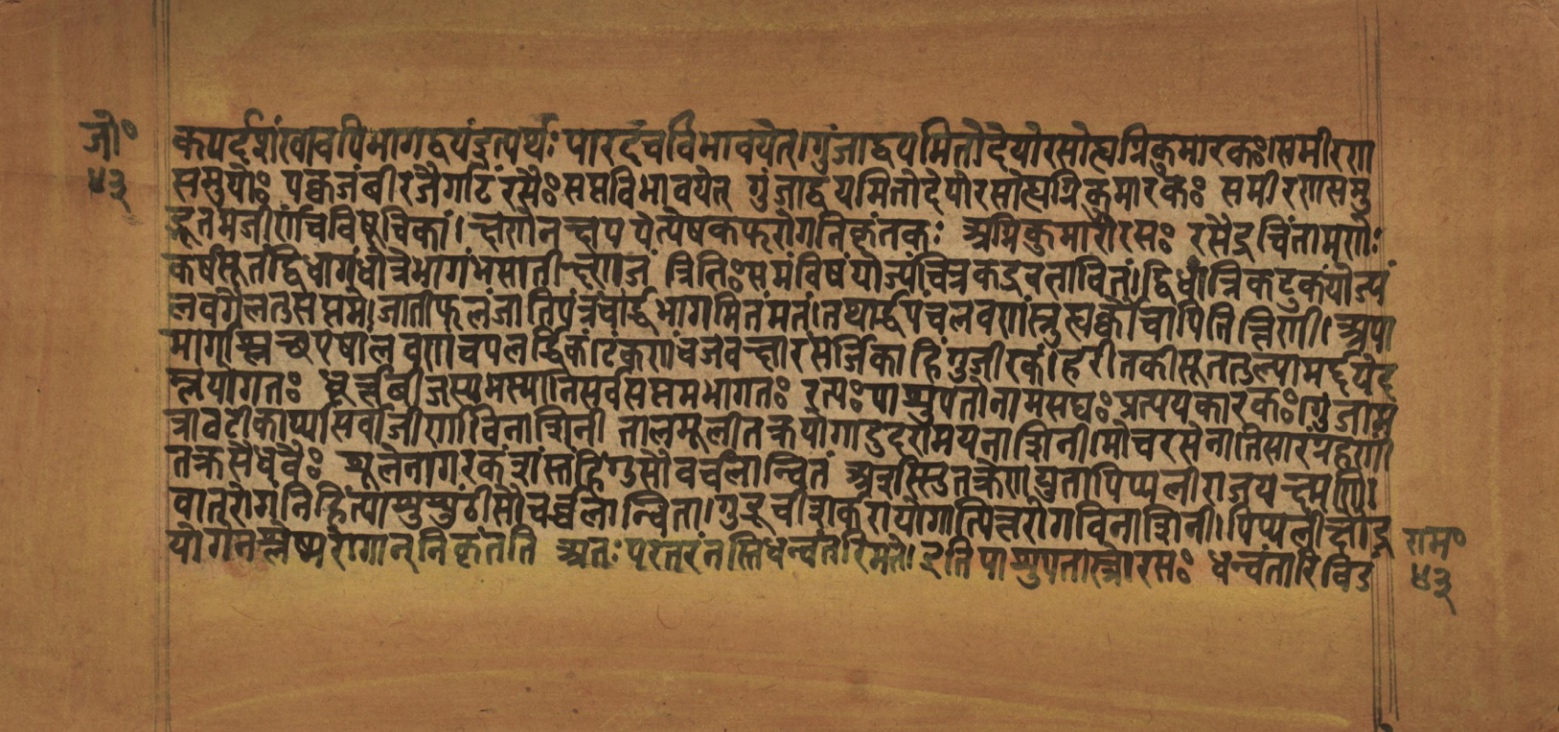 जी॰
४३
कपर्दशंखावपिभागद्वयंद्रुत्पर्थः पारदंचविभावयेत्।गुंजाद्वयमितोदेयोरसोह्यग्निकुमारकः।समीरणा
ससुयोः पक्वजंबीरजैर्गाटं रसैः सप्तविभावयेत् गुंजाद्वयमितोदेयोरसोह्यग्निकुमारकः समीरणासमु
द्भूतमजीर्णंचविषूचिकां। क्षणेनक्षपयेत्येषकफरोगनिकृंतकः अग्निकुमारोरसः रसेंद्रचिंतामणोः
कर्षंसूतंद्विधागंधंत्रिभागंभस्मतीक्ष्णजं त्रिभिःसमंविषंयोज्यंचित्रकद्रवभावितं। द्विधात्रिकटुकंयोज्यं
लवंगैलतुसप्तमं।जातीफलजातिपत्रंचार्द्धभागमितंमतं।तथार्द्धंपंचलवणंस्नुह्यर्कैचापितिंत्तिणी। अपा
मार्गाश्वच्छएषालवणंचपलर्द्धिकं।टंकणंचजवक्षारसर्जिकाहिंगुजीरकं।हरीतकीसूततुल्यामर्द्दयेद
म्लयोगतः धूर्त्तबीजस्यभस्मानिसर्वसप्तमभागतः रत्यः पाशुपतोनामसद्यः प्रत्ययकारकः।गुंजामा
त्रावटीकार्प्यासर्वाजीर्णाविनाशिनी तालमूलीतक्रयोगादुदरामयनाशिनी।मोचरसेनातिसारंग्रहणीं
तक्रसैंधवैः शूलेनागरकंशस्तंहिंगुसौवर्चलान्वितं अर्शसिस्तुतक्रेणयुतापिप्पलीराजयक्ष्मणि।
वातरोगंनिहंत्याशुशुण्ठीसौवर्च्चलान्विता।गुडूचीशर्करायोगात्पित्तरोगविनाशिनी।पिप्पलीक्षौद्र
योगेनश्लेष्मरोगान्निकृंतति अतः परतरंनास्तिधन्वंतरिमते। इति पाशुपतास्त्रोरसः धन्वंतरिविड
राम॰
४३